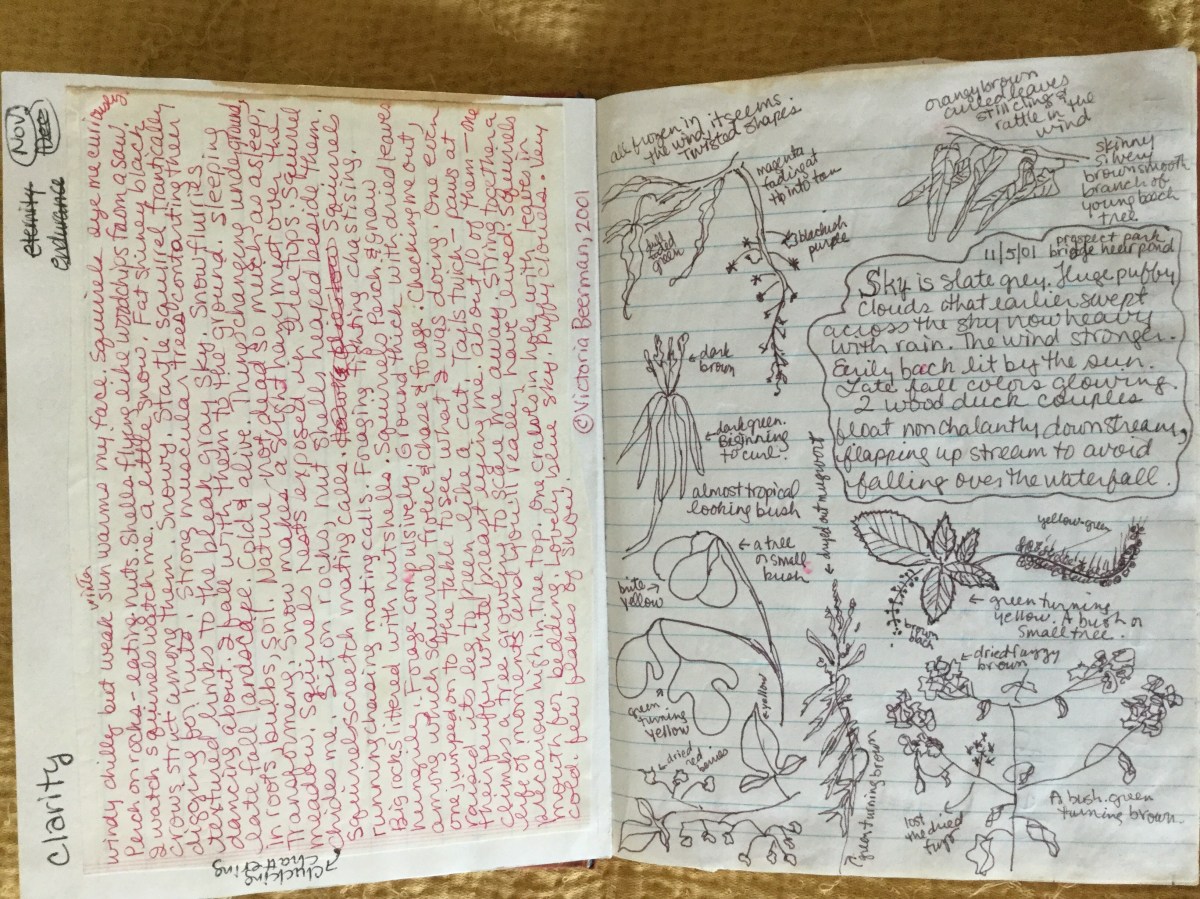 Clarity
eternity
endurance
Nov
There
windy chilly but weak sun warms my face. Squirrels eye me curiously.
Perch on rocks - eating nuts. Shells flying like woodchips from a saw.
2 watch squirrels watch me. a little snow. Fat shiney black
crows strut among them. Snowy. Stark trees contorting their
digging for nuts. Strong muscular
textured limbs to the bleak gray sky. Snow flurries
dancing about. I fall with them to the ground. sleeping
late fall landscape. Cold & alive. Things changing underground
in roots, bulbs, soil. Nature not dead so much as asleep,
Transforming. Snow makes a slight hazy mist over the
meadow. Squirrels nests exposed in skeletal treetops. Squirrel
chides me. Sit on rocks, nut shells in heaped beside them.
Squirrels scratch mating calls. Squirrels
running chasing mating calls. Foraging fighting chastising.
Big rocks littered with nutshells. Squirrels perch & gnaw
hungrily. Forage compulsively. Ground thick with dried leaves
among which squirrels hover & chase & forage. Checking me out,
one jumped on to the lake to see what I was doing. One even
raised its leg to pee like a cat. Tails twich - paws at
their fluffy white breast eying me. about 10 of them - one
climbs a tree growling to scare me away. String together a
life of moments and you'll really have lived. Squirrels
precarious high in tree top. One crawls in hole with leaves in
mouth for bedding. Lovely blue sky. Puffy clouds. Very
cold. few flakes of snow.
clucking
chattering
©Victoria Beerman, 2001
all frozen in it seems.
the wind
Twisted shapes.
magenta
fading at
tip into tan
blackish
purple
green
orangy brown
curled leaves
still cling &
rattle in the
wind
skinny
silvery
brown smooth
branch of
young beech
tree
11/5/01 prospect park
bridge near pond
Sky is slate grey. Huge puffy
clouds that earlier swept
across the sky now heavy
with rain. The wind stronger.
Eerily back lit by the sun.
Late fall colors glowing.
2 wood duck couples
float nonchalantly downstream,
flapping up stream to avoid
falling over the waterfall.
dark
brown
dark green.
Beginning
to curl.
almost tropical
looking bush
a tree
or small
bush
brite
yellow
green
turning
yellow
yellow
dried
red berries
dried out mugwort
grey turning brown
yellow-green
brown
black
green turning
yellow. A bush or
small tree.
dried fuzzy
brown
lost
the dried
fuzz
A bush. green
turning brown.